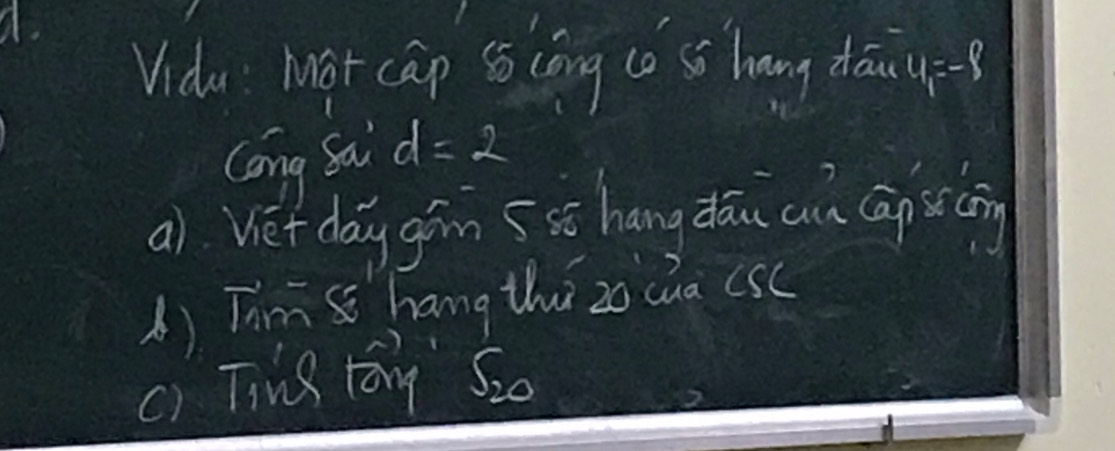 d.
Ví dụ: Một cấp số cộng có số hạng đầu u₁=-8
Công sai d = 2
a). Viết dãy gồm 5 số hạng đầu của cấp số cộng
b). Tìm số hạng thứ 20 của CSC
c) Tính tổng S₂₀